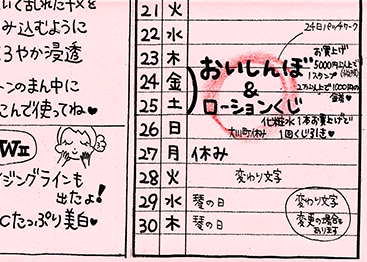 み込むように
ろやか浸透
トンのまん中に
こんで使ってね♥
WⅡ
ジングラインも
出たよ!
Cたっぷり美白♥
21 火
22 水
23 木
24 金
25 土
26 日
27 月 休み
28 火 変わり文字
29 水 琴の日
30 木 琴の日
24日パッチワーク
おいしんぼ
&
ローションくじ
お買上げ
5000円以上で
1スタンプ
2万以上で1000円の
金券♥
化粧水1本お買上げで
1回くじ引き♥
大山町休み
変わり文字
変更の場合も
あります